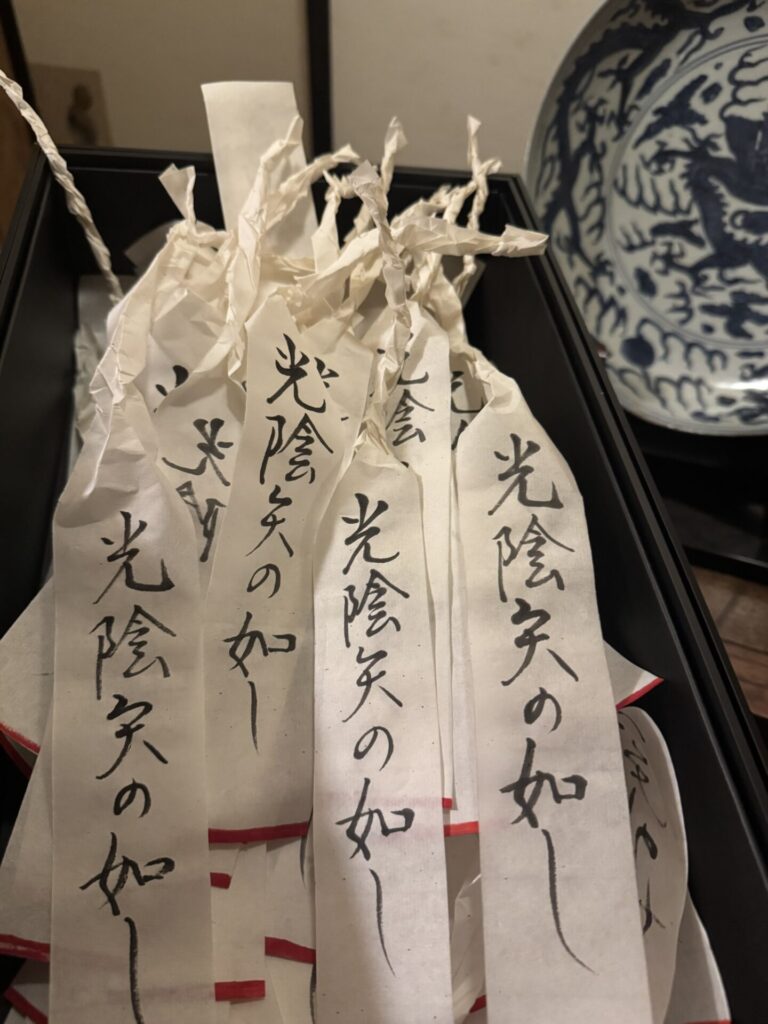 光陰矢の如し
光陰矢の如し
光陰矢の如し
光陰矢の如し
光陰
光陰